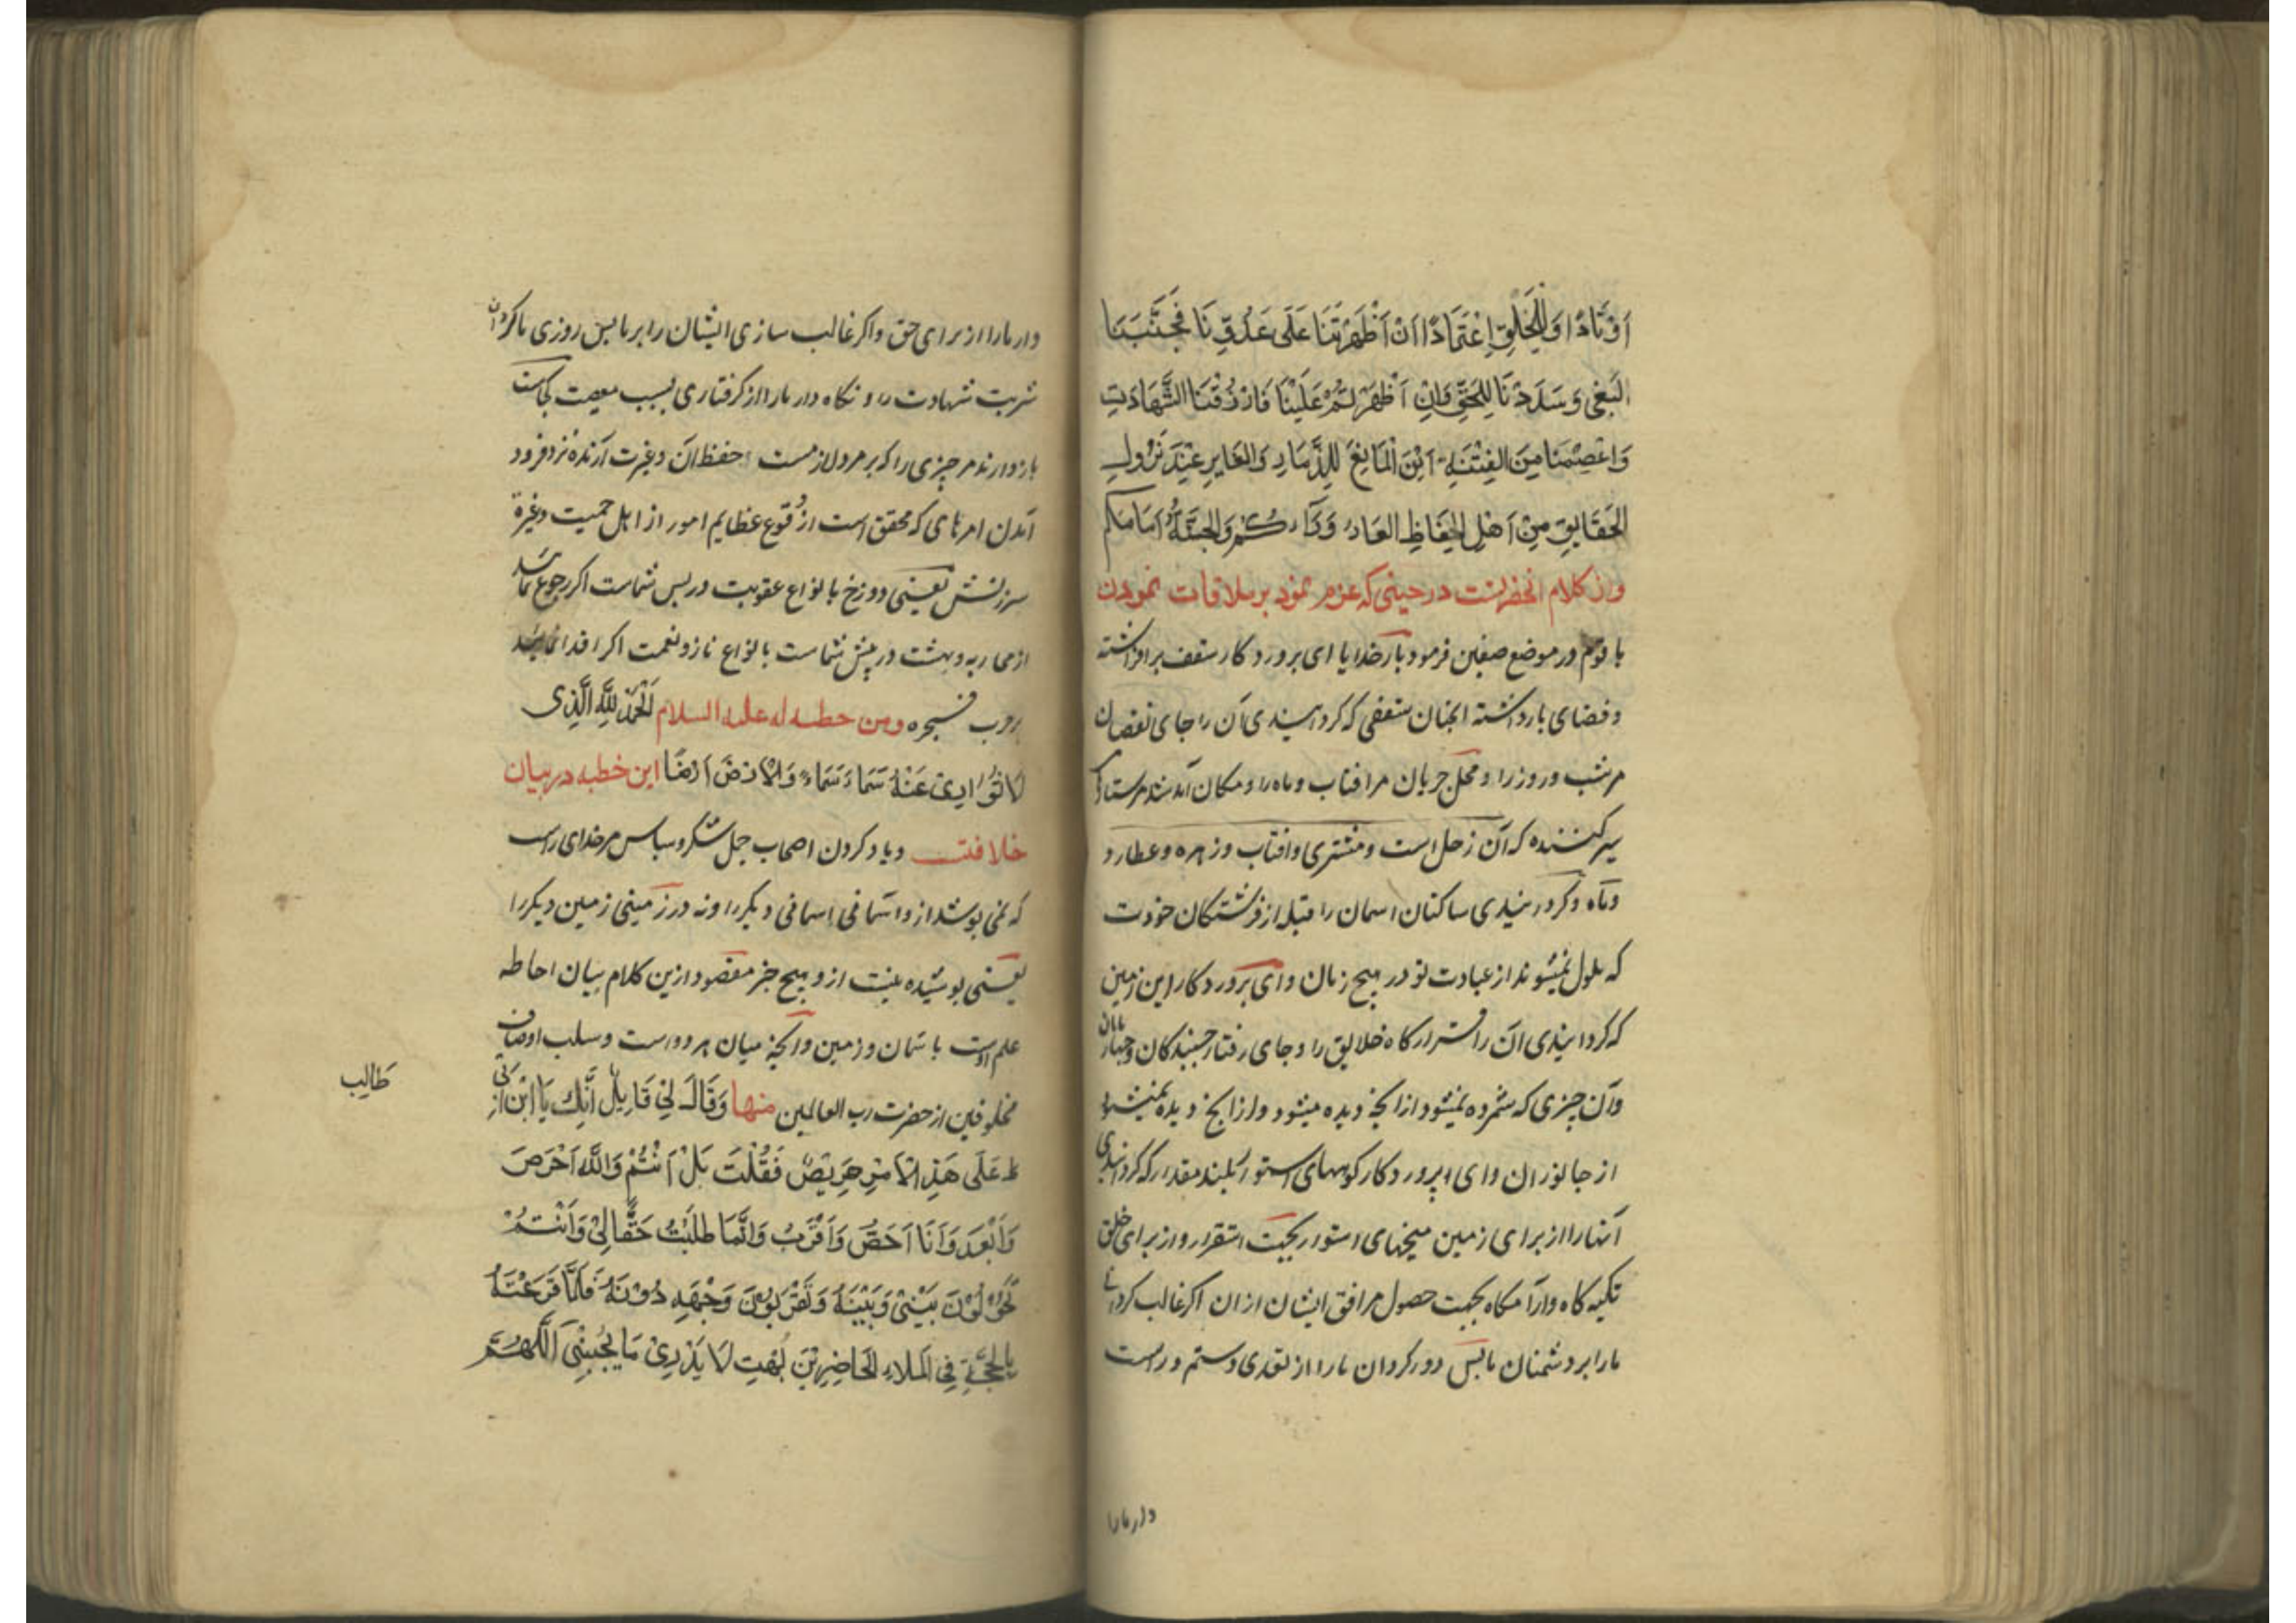 اَوْتَادًا وَلِلْخَلْقِ اِعْتِمَادًا اَنْ اَظْهَرْتَنَا عَلَى عَدُوِّنَا فَجَنِّبْنَا
الْبَغْیَ وَسَدِّدْنَا لِلْحَقِّ وَاِنْ اَظْهَرْتَهُمْ عَلَيْنَا فَارْزُقْنَا الشَّهَادَتِ
وَاعْصِمْنَا مِنَ الْفِتْنَةِ اَيْنَ الْمَانِعُ لِلذِّمَارِ وَالْغَايِرِ عِنْدَ نُزُولِ
الْحَقَايِقِ مِنْ اَهْلِ الْحِفَاظِ الْعَارُ وَرَآءَكُمْ وَالْجَنَّةُ اَمَامَكُم
واز کلام انحضرتست در حینی که عزم نمود بر ملاقات نمودن
با قوم در موضع صفین فرمود بار خدایا ای پروردکار سقف برافراشته
و فضای بازداشته انچنان سقفی که کردانیدی آن را جای نقصان
مر شب و روز را و محل جریان مر افتاب و ماه را و مکان آمد شد مر ستارکان
سیر کننده که آن زحل است و مشتری و افتاب و زهره و عطارد
و ماه و کردانیدی ساکنان اسمان را قبیله از فرشتکان خودت
که ملول نمیشوند از عبادت تو در هیچ زمان و ای پروردکار این زمین
که کردانیدی ان را قرارکاه خلایق را و جای رفتار جنبندکان و چهارپایان
و آن چیزی که شمرده نمیشود از انچه دیده میشود و از انچه دیده نمیشود
از جانوران و ای پروردکار کوههای استوار بلند مقدار که کردانیدی
آنها را از برای زمین میخهای استوار بجهت استقرار و از برای خلق
تکیه کاه و آرامکاه بجهت حصول مرافق ایشان از ان اکر غالب کردانی
ما را بر دشمنان ما پس دور کردان ما را از تعدی و ستم و راست
دار ما را
دار ما را از برای حق و اکر غالب سازی ایشان را بر ما پس روزی ما کردان
شربت شهادت را و نکاه دار ما را از کرفتاری بسبب معصیت کجاست
بازدارنده مر چیزی را که بر مرد لازمست حفظ آن و غیرت آرنده نزد فرود
آمدن امرهای که محقق است از وقوع عظایم امور از اهل حمیت و غیرة
سرزنش یعنی دوزخ با نواع عقوبت در پس شماست اکر رجوع نمائید
از محاربه و بهشت در پیش شماست با نواع ناز و نعمت اکر اقدام نمائید
بر حرب فجره ومن خطبه له علیه السلام اَلْحَمْدُ لِلّٰهِ الَّذِی
لَا تُوَارِیْ عَنْهُ سَمَآءٌ سَمَآءً وَلَا اَرْضٌ اَرْضًا این خطبه در بیان
خلافت و یاد کردن اصحاب جمل شکر و سپاس مر خدای راست
که نمی پوشد از و اسمانی اسمانی دیکر را و نه در زمینی زمین دیکر را
یعنی پوشیده نیست از و هیچ چیز مقصود ازین کلام بیان احاطه
علم اوست با سمان و زمین و انچه میان هر دو است و سلب اوصاف
مخلوقین از حضرت رب العالمین منها وَقَالَ لِیْ قَايِلٌ اَنَّكَ يَا ابْنَ اَبِیْ
طَالِب
عَلَى هَذِ الْاَمْرِ حَرِيْصٌ فَقُلْتَ بَلْ اَنْتُمْ وَاللّٰهِ اَحْرَصَ
وَاَبْعَدَ وَاَنَا اَخَصُّ وَاَقْرَبُ وَاِنَّمَا طَلَبْتُ حَقًّا لِیْ وَاَنْتُمْ
تَحُوْلُوْنَ بَيْنِیْ وَبَيْنَهُ وَتَضْرِبُوْنَ وَجْهِی دُوْنَهُ فَلَمَّا قَرَعْتُهُ
بِالْحُجَّةِ فِی الْمَلَاءِ الْحَاضِرِيْنَ بُهِتَ لَا يَدْرِیْ مَا يُجِيْبُنِیْ اَللّٰهُمَّ